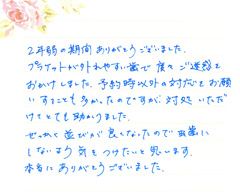 2年弱の期間ありがとうございました。
ブラケットが外れやすい歯で度々ご迷惑を
おかけしました。予約時以外の対応をお願
いすることも多かったのですが、対処いただ
けてとても助かりました。
せっかく並びが良くなったので歯に
しないよう気をつけたいと思います。
本当にありがとうございました。